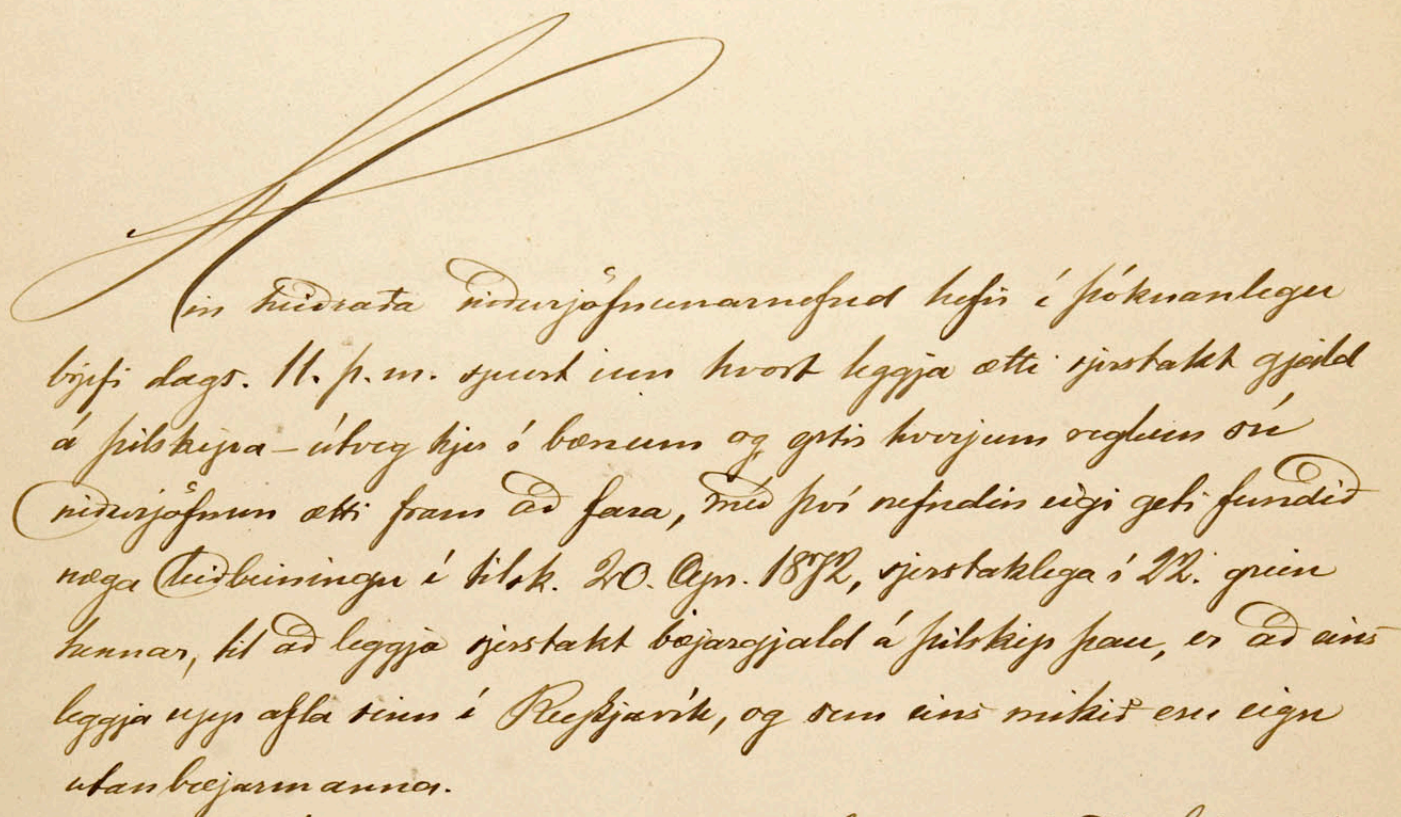 Hin heiðraða niðurjöfnunarnefnd hefir í þóknanlegu
brjefi dags. 11. þ. m. spurt um hvort leggja ætti sjerstakt gjald
á þilskipa-útveg hjer í bænum og eptir hverjum reglum sú
niðurjöfnun ætti fram að fara, með því nefndin eigi geti fundið
næga leiðbeiningu í tilsk. 20. Apr. 1872, sjerstaklega í 22. grein
hennar, til að leggja sjerstakt bæjargjald á þilskip þau, er að eins
leggja upp afla sinn í Reykjavík, og sem eins mikið eru eign
utanbæjarmanna.